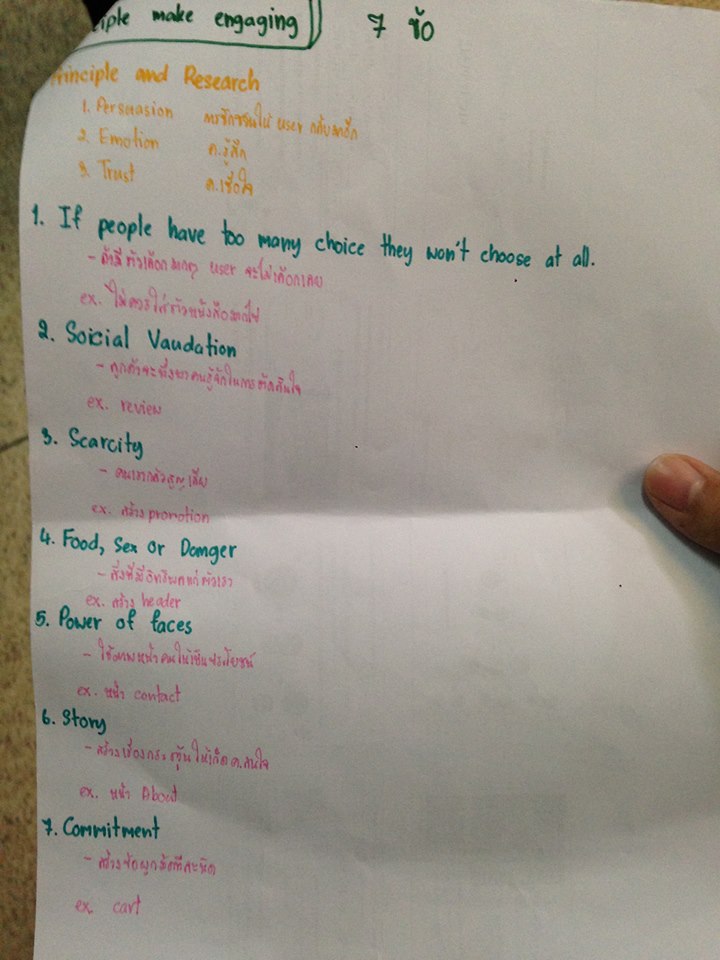 iple make engaging 7 ข้อ
Principle and Research
1. Persuasion การชักชวนให้ user กลับมาอีก
2. Emotion ค.รู้สึก
3. Trust ค.เชื่อใจ
1. If people have too many choice they won't choose at all.
- ถ้ามีตัวเลือกมากๆ user จะไม่เลือกเลย
ex. ไม่ควรใส่ตัวหนังสือมากไป
2. Soicial Vaudation
- ลูกค้าจะพึ่งพาคนรู้จักในการตัดสินใจ
ex. review
3. Scarcity
- คนเรากลัวสูญเสีย
ex. สร้าง promotion
4. Food, Sex or Domger
- สิ่งที่มีอิทธิพลแก่ตัวเรา
ex. สร้าง header
5. Power of faces
- ใช้ภาพหน้าคนให้เป็นประโยชน์
ex. หน้า contact
6. Story
- สร้างเรื่องกระตุ้นให้เกิด ค.สนใจ
ex. หน้า About
7. Commitment
- สร้างข้อผูกมัดทีละนิด
ex. cart